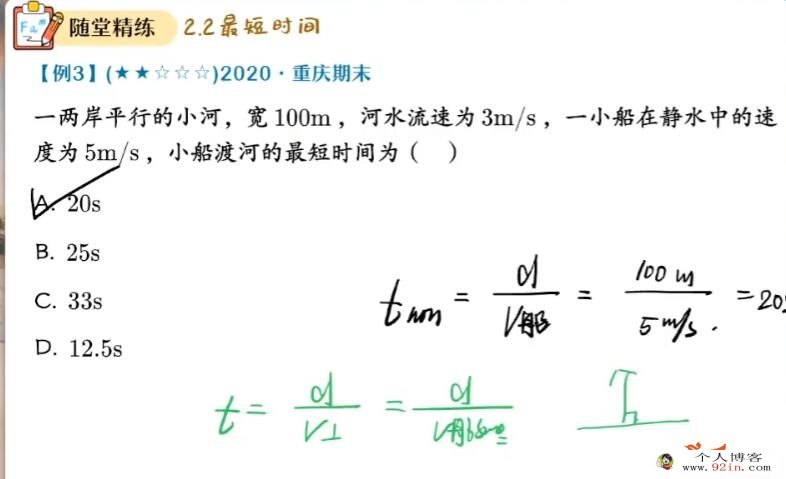 随堂精练 2.2最短时间
【例3】(★★☆☆☆)2020·重庆期末
一两岸平行的小河，宽100m，河水流速为3m/s，一小船在静水中的速
度为5m/s，小船渡河的最短时间为（ ）
A. 20s
B. 25s
C. 33s
D. 12.5s
t min = d / V船 = 100 m / 5 m/s . = 20
t = d / V⊥ = d / V船
个人博客
www.92in.com